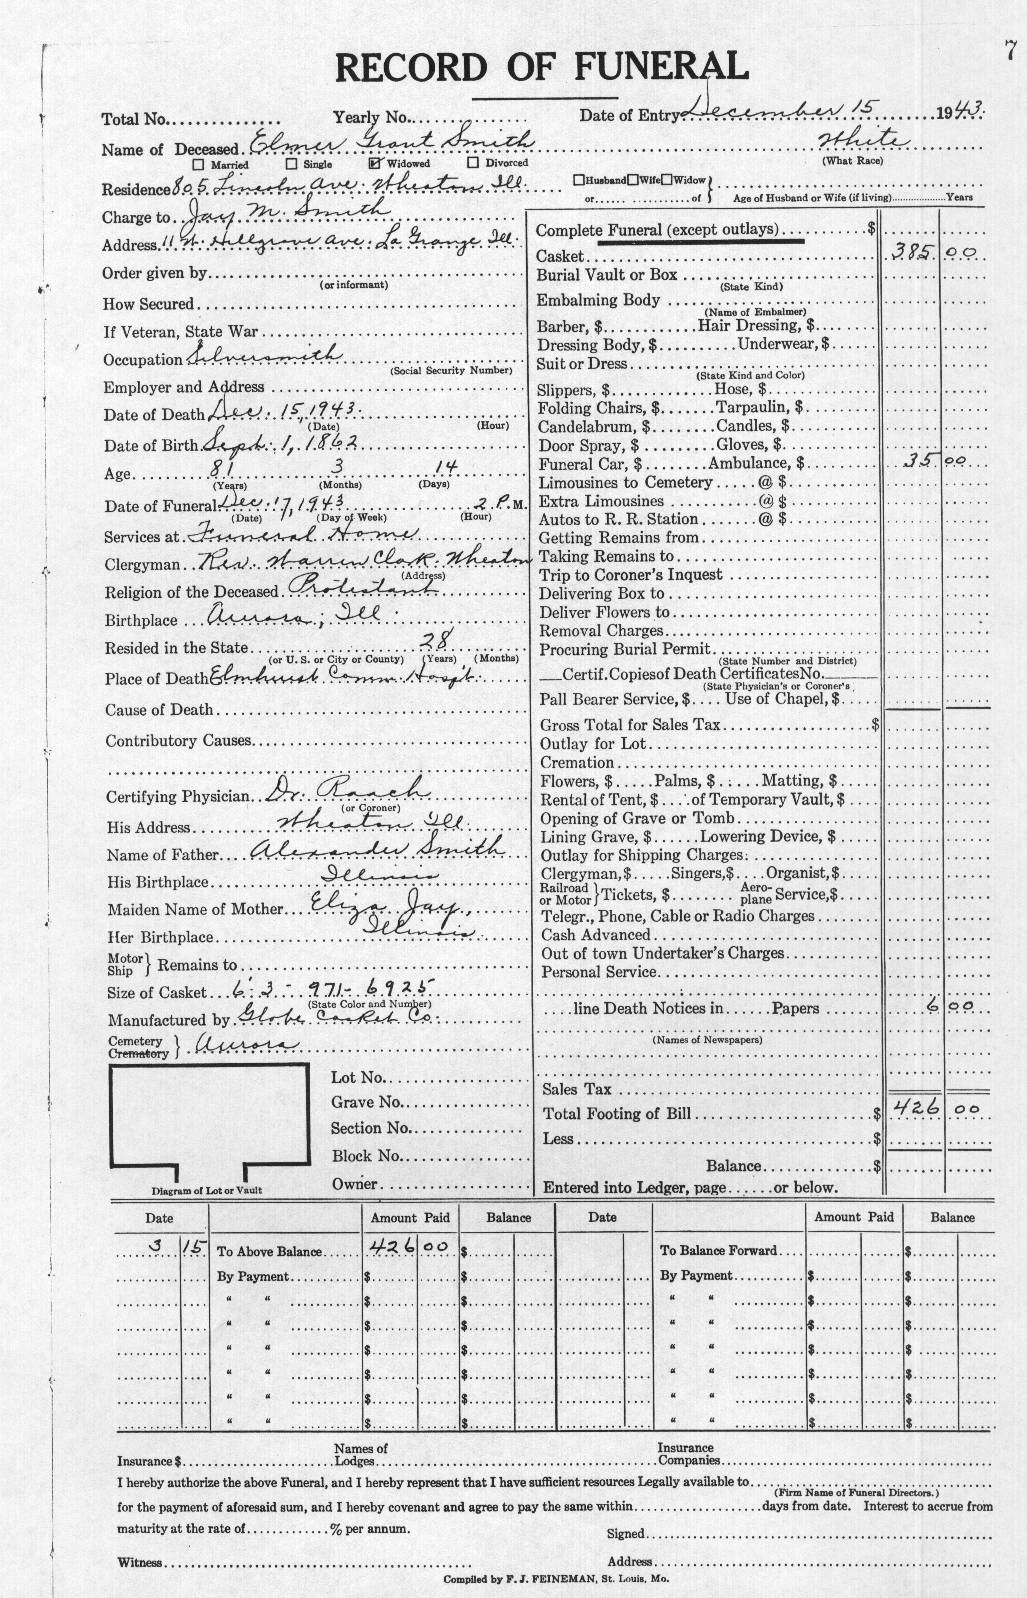 7
RECORD OF FUNERAL
Total No. Yearly No. Date of Entry December 15 1943.
Name of Deceased Elmer Grant Smith White
☐ Married ☐ Single ☑ Widowed ☐ Divorced (What Race)
Residence 805 Lincoln Ave. Wheaton Ill. ☐Husband☐Wife☐Widow} or of Age of Husband or Wife (if living) Years
Charge to Jay M. Smith
Address 11 W. Hillgrove Ave. La Grange Ill.
Order given by
(or informant)
How Secured
If Veteran, State War
Occupation Silversmith
(Social Security Number)
Employer and Address
Date of Death Dec. 15, 1943.
(Date) (Hour)
Date of Birth Sept. 1, 1862
Age 81 3 14
(Years) (Months) (Days)
Date of Funeral Dec. 17, 1943 2 P.M.
(Date) (Day of Week) (Hour)
Services at Funeral Home
Clergyman Rev. Warren Clark. Wheaton
(Address)
Religion of the Deceased Protestant
Birthplace Aurora, Ill.
Resided in the State 28
(or U. S. or City or County) (Years) (Months)
Place of Death Elmhurst Comm. Hospt.
Cause of Death
Contributory Causes
Certifying Physician Dr. Raach
(or Coroner)
His Address Wheaton Ill.
Name of Father Alexander Smith
His Birthplace Illinois
Maiden Name of Mother Eliza Jay,
Her Birthplace Illinois.
Motor Ship } Remains to
Size of Casket 6' 3 - 971- 6925
(State Color and Number)
Manufactured by Globe Casket Co.
Cemetery Crematory } Aurora
Lot No.
Grave No.
Section No.
Block No.
Owner
Diagram of Lot or Vault
Complete Funeral (except outlays) $
Casket 385 00
Burial Vault or Box
(State Kind)
Embalming Body
(Name of Embalmer)
Barber, $ Hair Dressing, $
Dressing Body, $ Underwear, $
Suit or Dress
(State Kind and Color)
Slippers, $ Hose, $
Folding Chairs, $ Tarpaulin, $
Candelabrum, $ Candles, $
Door Spray, $ Gloves, $
Funeral Car, $ Ambulance, $ 35 00
Limousines to Cemetery @ $
Extra Limousines @ $
Autos to R. R. Station @ $
Getting Remains from
Taking Remains to
Trip to Coroner's Inquest
Delivering Box to
Deliver Flowers to
Removal Charges
Procuring Burial Permit
(State Number and District)
Certif. Copies of Death Certificates No.
(State Physician's or Coroner's
Pall Bearer Service, $ Use of Chapel, $
Gross Total for Sales Tax $
Outlay for Lot
Cremation
Flowers, $ Palms, $ Matting, $
Rental of Tent, $ of Temporary Vault, $
Opening of Grave or Tomb
Lining Grave, $ Lowering Device, $
Outlay for Shipping Charges:
Clergyman, $ Singers, $ Organist, $
Railroad or Motor } Tickets, $ Aero-plane Service, $
Telegr., Phone, Cable or Radio Charges
Cash Advanced
Out of town Undertaker's Charges
Personal Service
line Death Notices in Papers 6 00
(Names of Newspapers)
Sales Tax
Total Footing of Bill $ 426 00
Less $
Balance $
Entered into Ledger, page or below.
Date Amount Paid Balance Date Amount Paid Balance
3 15 To Above Balance 426 00 $ To Balance Forward $
By Payment $ $ By Payment $ $
" " $ $ " " $ $
" " $ $ " " $ $
" " $ $ " " $ $
" " $ $ " " $ $
" " $ $ " " $ $
" " $ $ " " $ $
Insurance $ Names of Lodges Insurance Companies
I hereby authorize the above Funeral, and I hereby represent that I have sufficient resources Legally available to
(Firm Name of Funeral Directors.)
for the payment of aforesaid sum, and I hereby covenant and agree to pay the same within days from date. Interest to accrue from
maturity at the rate of % per annum. Signed
Witness Address
Compiled by F. J. FEINEMAN, St. Louis, Mo.